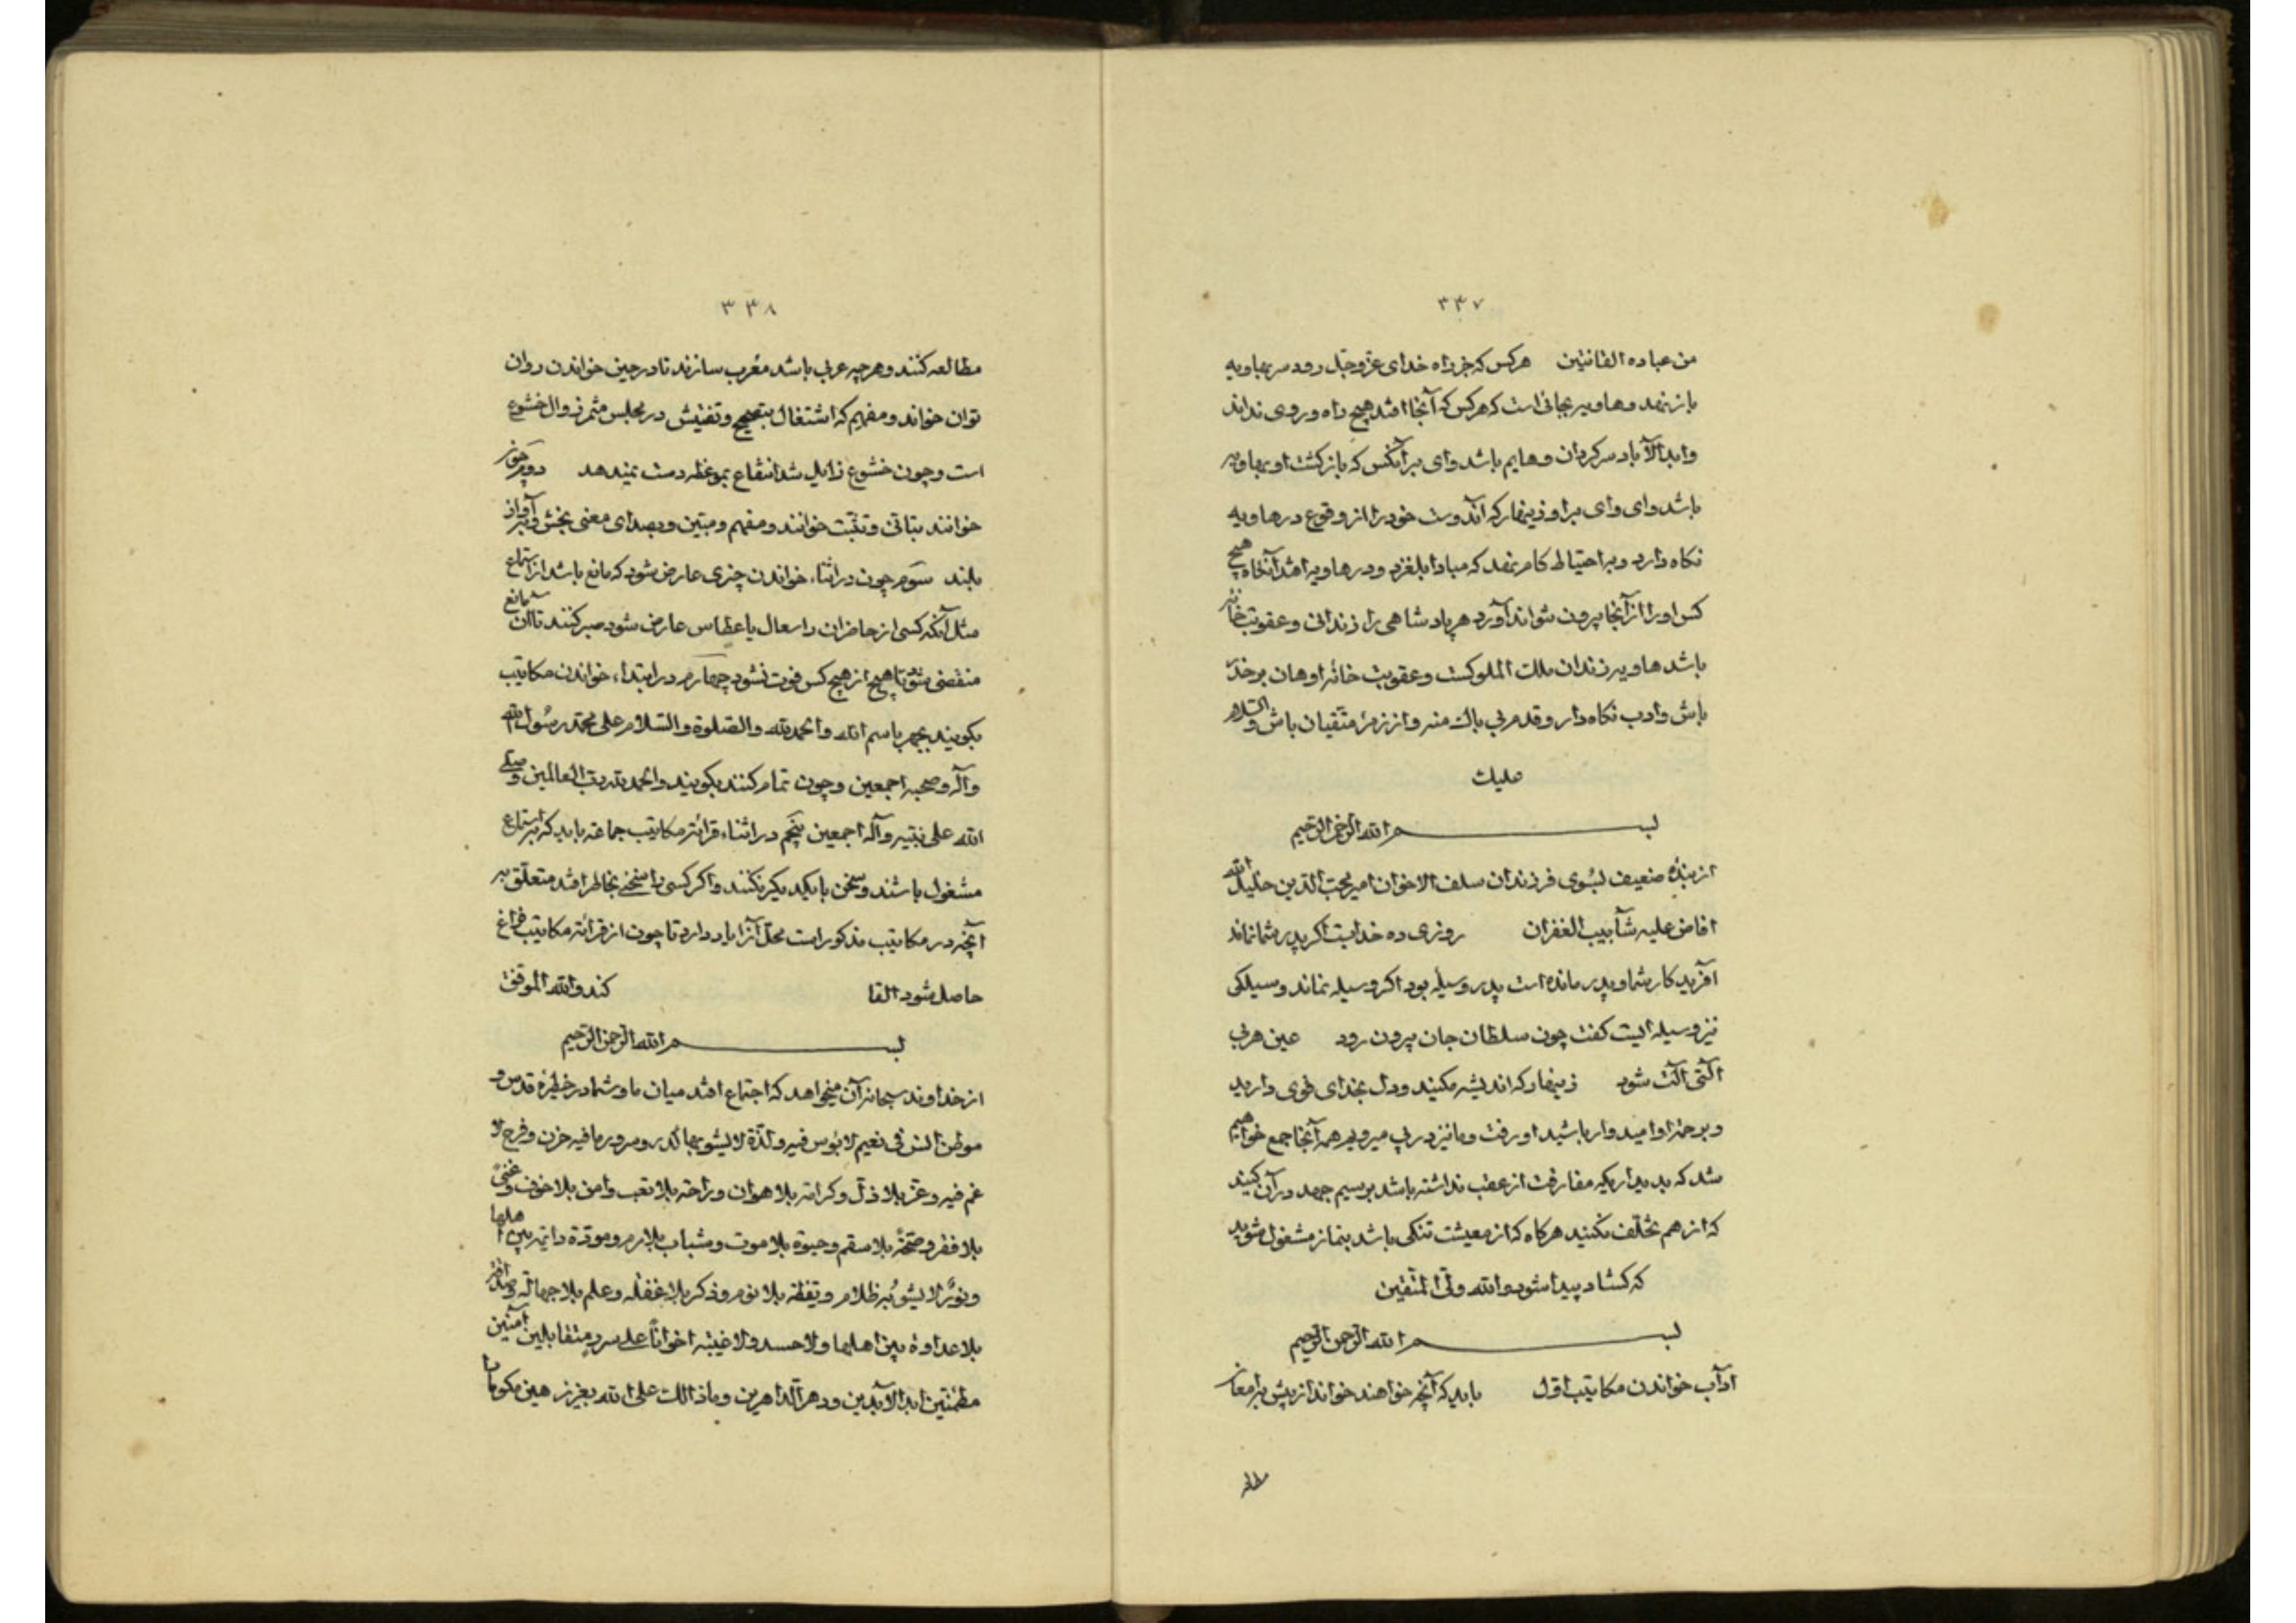 ۳۳۷
من عباده القانتین هرکس که جز راه خدای عزّ و جلّ رود سر بهاویه
باز نهد و هاویه جائی است که هرکس که آنجا افتد هیچ راه و روی نداند
و ابد الآباد سرکردان و هایم باشد وای بر آنکس که بازکشت او بهاویه
باشد وای وای بر او زینهار که آندوست خود را از وقوع در هاویه
نکاه دارد و بر احتیاط کام نهد که مبادا بلغزد و در هاویه افتد آنکاه هیچ
کس او را از آنجا بیرون نتواند آورد هر پادشاهی را زندانی و عقوبت خانه
باشد هاویه زندان ملک الملوکست و عقوبت خانه او هان بر حذر
باش و ادب نکاه دار و قدم بی باک منه و از زمرهٔ متّقیان باش و السّلام
علیک
بسم الله الرّحمن الرّحیم
از بندهٔ ضعیف بسُوی فرزندان سلف الاخوان امیر محبّ الدّین خلیل الله
افاض علیه شآبیب الغفران روزی ده خدایست اکر پدر شما نماند
آفریدکار شما و پدر مانده است پدر وسیله بود اکر وسیله نماند وسیلکی
نیز وسیله ایست کفت چون سلطان جان بیرون رود عین هر بی
آلتی آلت شود زینهار که اندیشه مکنید و دل بخدای قوی دارید
و برحمة او امیدوار باشید او رفت و ما نیز در پی میرویم همه آنجا جمع خواهیم
شد که بدیداریکه مفارقت از عقب نداشته باشد برسیم جهد در آن کنید
که از هم تخلّف نکنید هرکاه که از معیشت تنکی باشد بنماز مشغول شوید
که کشاد پیدا شود و الله ولیّ المتّقین
بسم الله الرّحمن الرّحیم
آداب خواندن مکاتیب اوّل باید که آنچه خواهند خواند از پیش بامعان
۳۳۸
مطالعه کنند و هرچه عربی باشد معُرب سازند تا در حین خواندن روان
توان خواند و مفهیم که اشتغال بتصحیح و تفتیش در مجلس مثمر زوال خشوع
است و چون خشوع زایل شد انتفاع بموعظه دست نمیدهد دویم چون
خوانند بتانّی و تثبّت خوانند و مفهم و مبین و بصدای معنی بخش و بآواز
بلند سوّم چون در اثناء خواندن چیزی عارض شود که مانع باشد از استماع
مثل آنکه کسی از حاضران را سعال یا عطاس عارض شود صبر کنند تا آن مانع
منقضی شود تا هیچ از هیچ کس فوت نشود چهارم در ابتداء خواندن مکاتیب
بکویند بجهر باسم الله و الحمد لله و الصّلوة و السّلام علی محمّد رسُول الله
و آله و صحبه اجمعین و چون تمام کنند بکویند و الحمد لله ربّ العالمین و صلّی
الله علی نبیّه و آله اجمعین پنجم در اثناء قرائة مکاتیب جماعة باید که باستماع
مشغول باشند و سخن با یکدیکر نکنند و اکر کسی را سخنی بخاطر افتد متعلّق به
آنچه در مکاتیب مذکور است محلّ آنرا یاد دارد تا چون از قرائة مکاتیب فراغ
حاصل شود القا کند و الله الموفّق
بسم الله الرّحمن الرّحیم
از خداوند سبحانه آن میخواهد که اجتماع افتد میان ما و شما در خطیرهٔ قدس و
موطن انس فی نعیم لا بؤس فیه و لذّة لا یشوبها کدر و سرور ما فیه حزن و فرح لا
غم فیه و عزّ بلا ذلّ و کرامة بلا هوان و راحة بلا تعب و امن بلا خوف و غنیً
بلا فقر و صحّة بلا سقم و حیوة بلا موت و شباب بلا هرم و مودّة دائمة بین اهلها
و نورٌ لا یشوبُه ظلام و یقظة بلا نوم و ذکر بلا غفلة و علم بلا جهالة
بلا عداوة بین اهلها و لا حسد و لا غیبة اخواناً علی سرر متقابلین آمنین
مطمئنّین ابد الآبدین و دهر الدّاهرین و ما ذالک علی الله بعزیز همین مکوبات